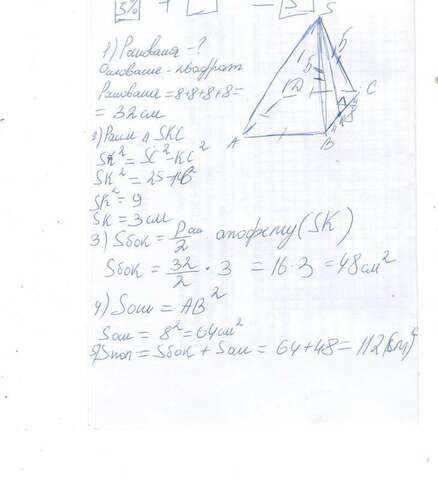 5% +
1) Pоснования - ?
Основание - квадрат
Pоснования = 8+8+8+8 =
= 32 см
2) Рассм Δ SKC
SK² = SC² - KC²
SK² = 25 - 16
SK² = 9
SK = 3 см
3) Sбок = Pосн/2 · апофему (SK)
Sбок = 32/2 · 3 = 16·3 = 48 см²
4) Sосн = AB²
Sосн = 8² = 64 см²
5) Sпол = Sбок + Sосн = 64 + 48 = 112 (см)²
S
5
5
D
C
A
B
8